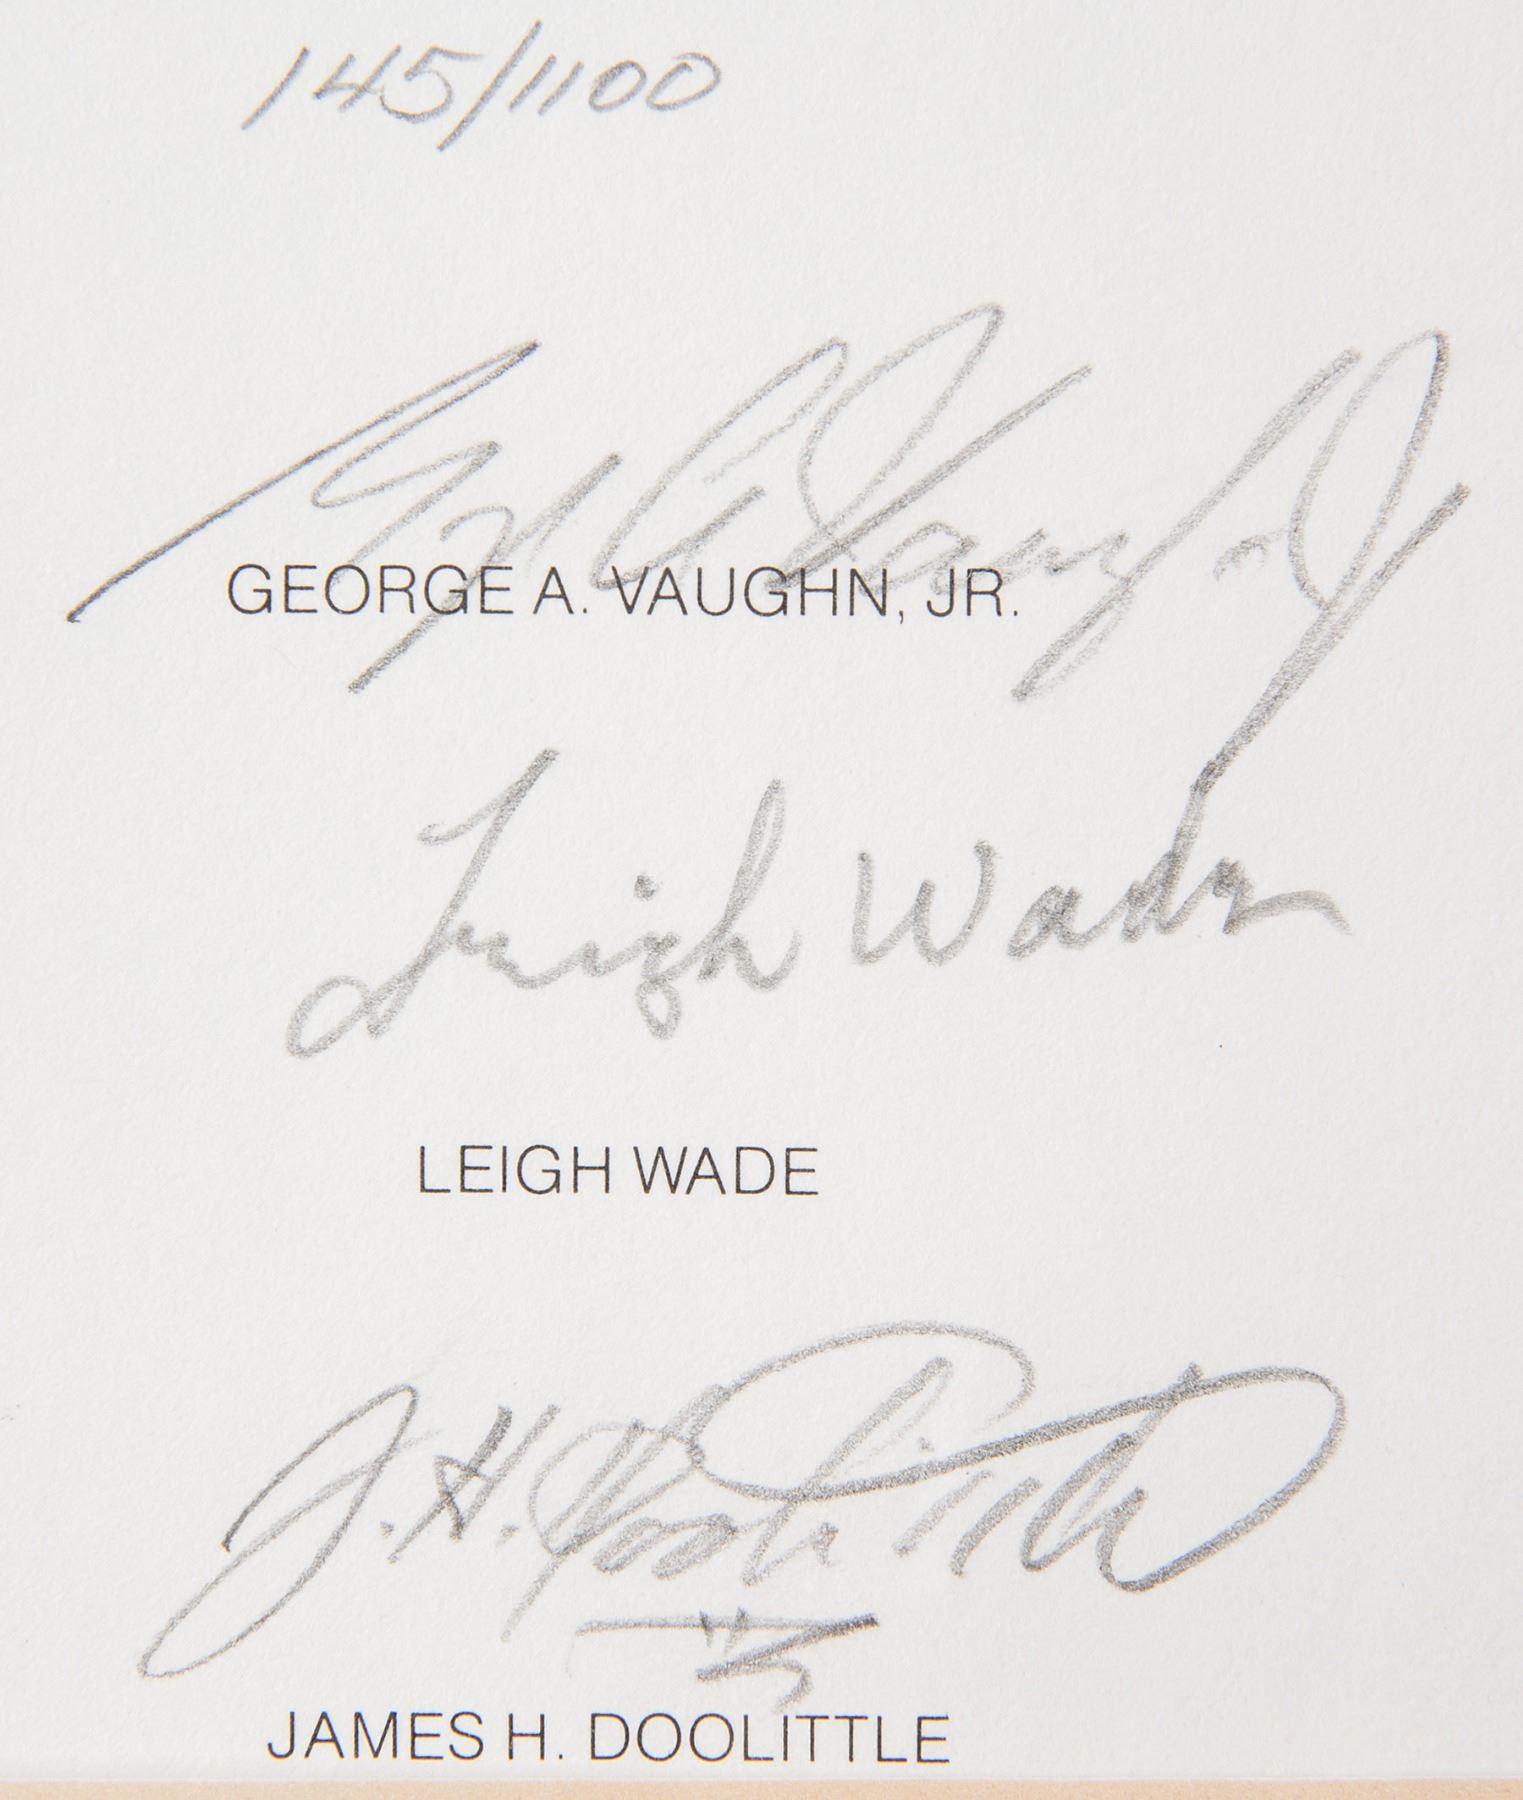 145/1100
Geo A Vaughn Jr
GEORGE A. VAUGHN, JR.
Leigh Wade
LEIGH WADE
J. H. Doolittle
JAMES H. DOOLITTLE